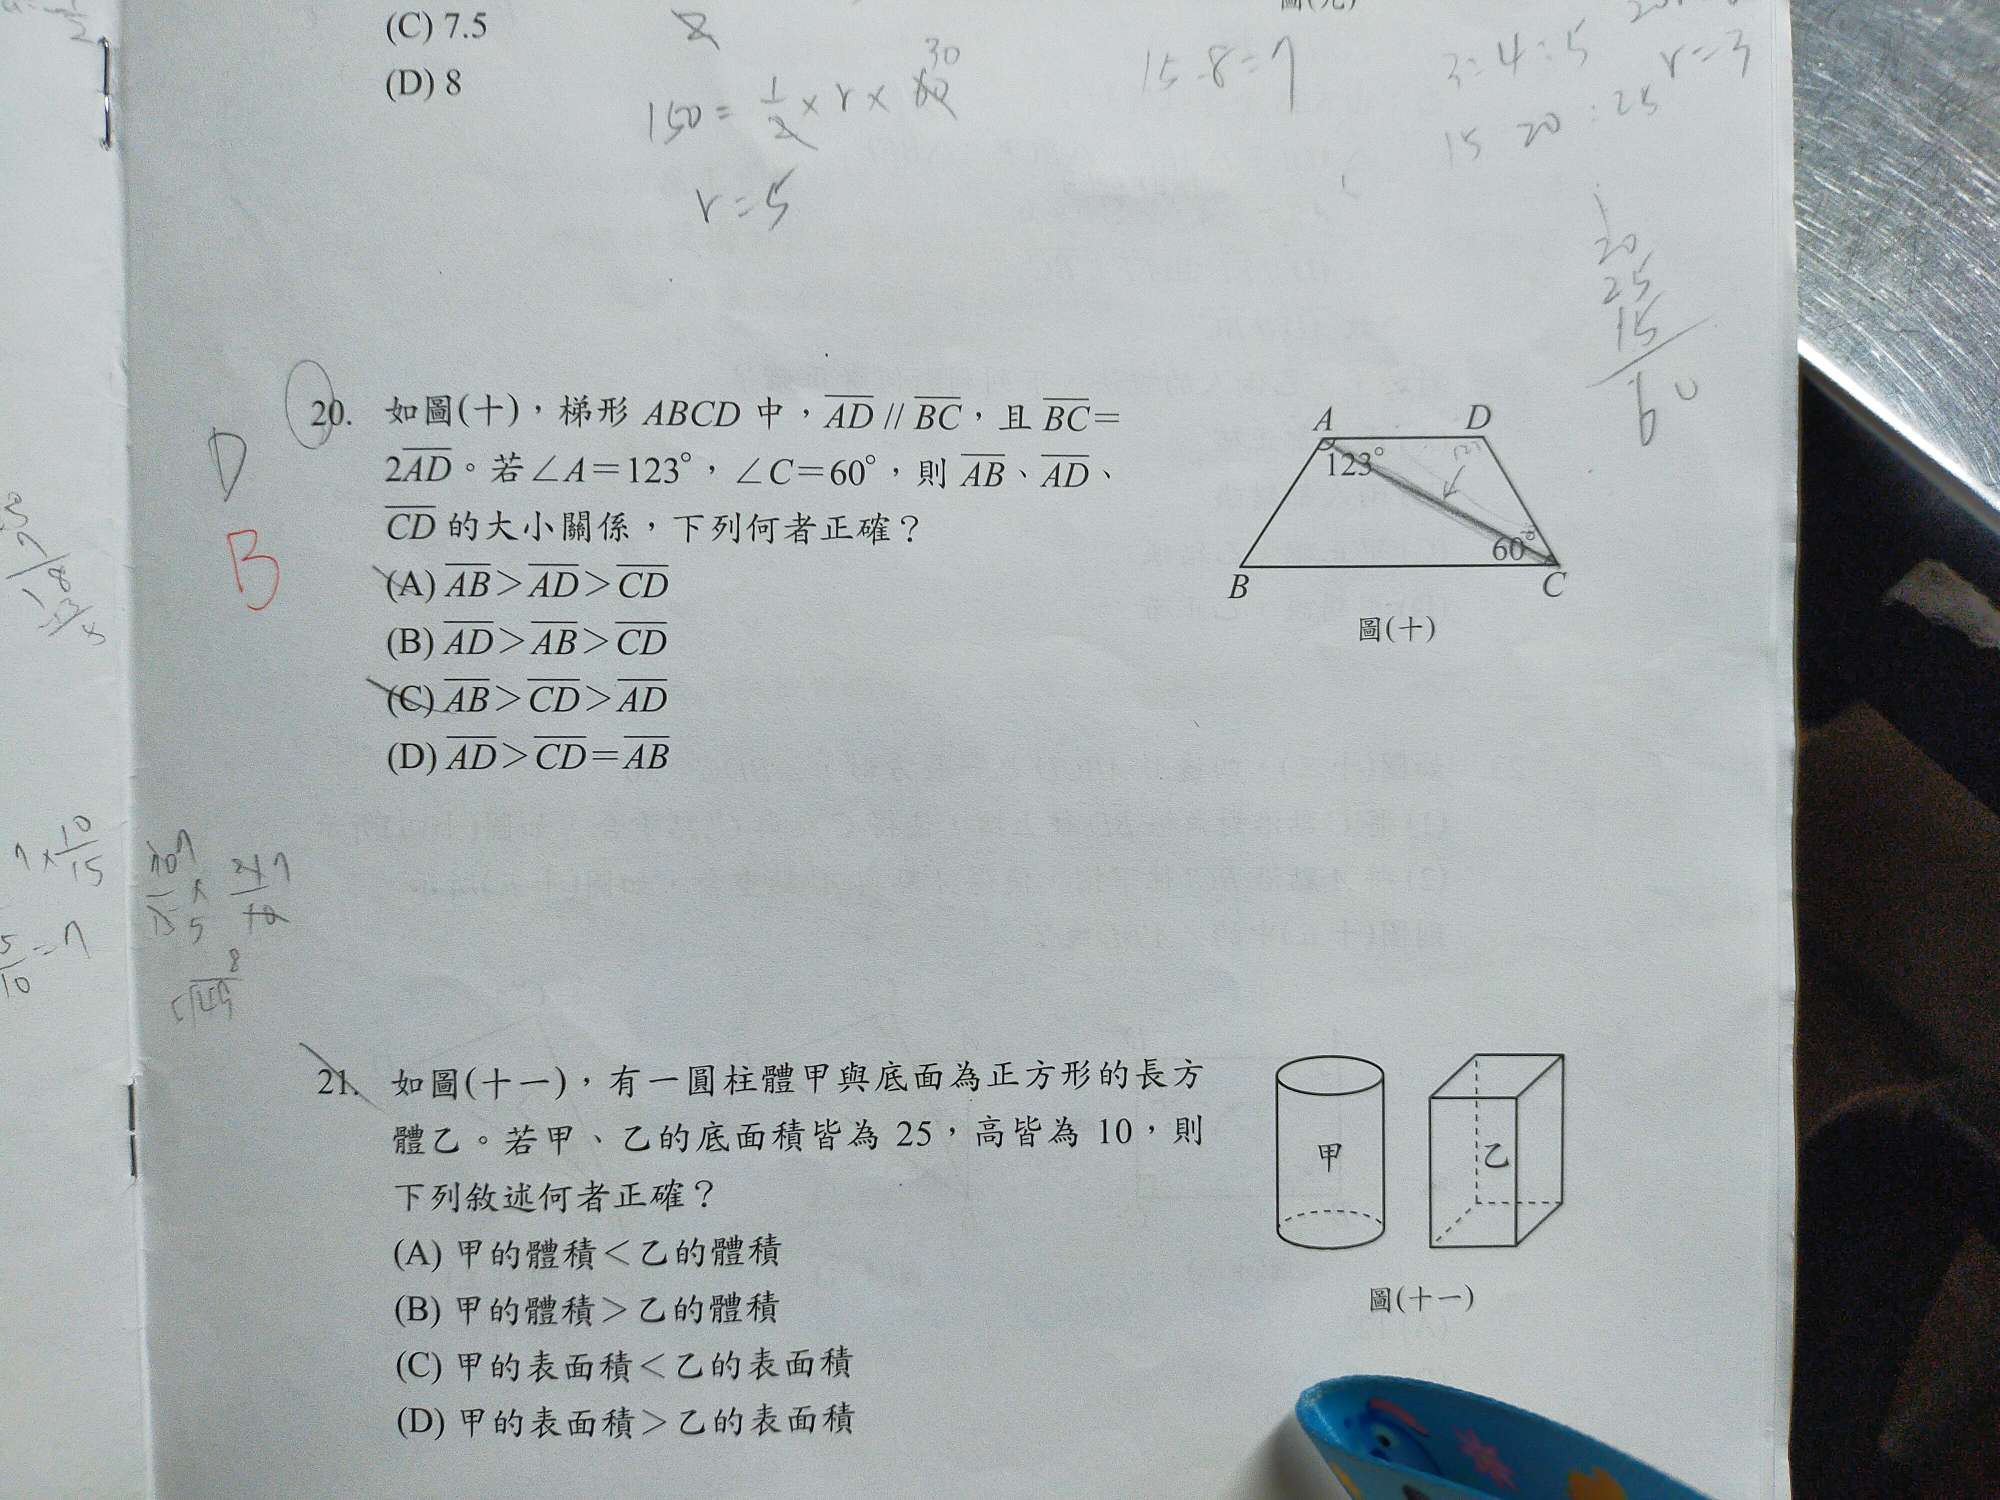 (C) 7.5
(D) 8
30
150 = 1/2 × r × 60
r = 5
15 - 8 = 7
3 : 4 : 5
r = 3
15 20 : 25
20
25
15
60
20. 如圖(十)，梯形 ABCD 中，AD // BC，且 BC＝
2AD。若∠A＝123°，∠C＝60°，則 AB、AD、
CD 的大小關係，下列何者正確？
(A) AB＞AD＞CD
(B) AD＞AB＞CD
(C) AB＞CD＞AD
(D) AD＞CD＝AB
D
B
A
D
123°
60°
B
C
圖(十)
7 × 10/15
5/10 = 7
21. 如圖(十一)，有一圓柱體甲與底面為正方形的長方
體乙。若甲、乙的底面積皆為 25，高皆為 10，則
下列敘述何者正確？
(A) 甲的體積＜乙的體積
(B) 甲的體積＞乙的體積
(C) 甲的表面積＜乙的表面積
(D) 甲的表面積＞乙的表面積
甲
乙
圖(十一)